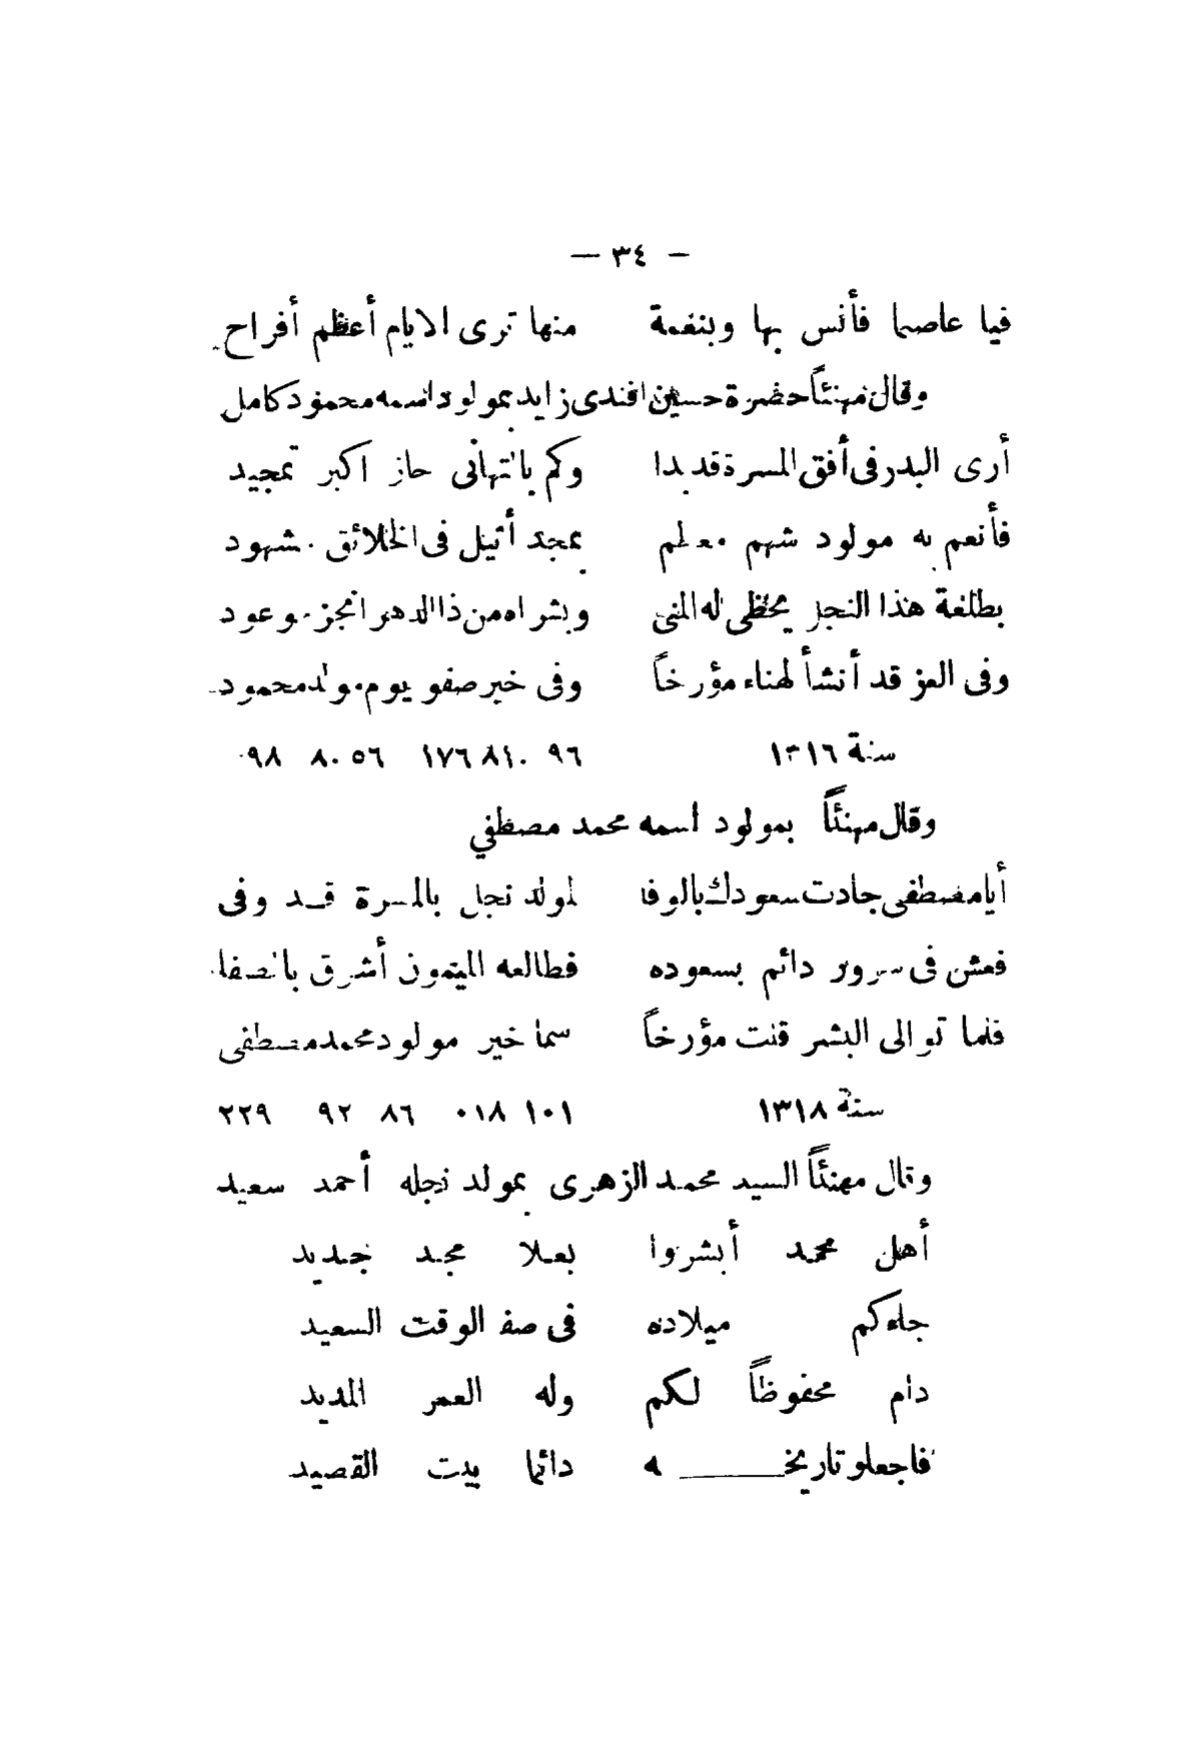 — ٣٤ —
فيا عاصما فأنس بها وبنعمة منها ترى الايام أعظم أفراح
وقال مهنئاً حضرة حسين افندى زايد بمولود اسمه محمود كامل
أرى البدر فى أفق المسرة قد بدا وكم بالتهانى حاز اكبر تمجيد
فأنعم به مولود شهم معلم بمجد أثيل فى الخلائق مشهود
بطلعة هذا النجل يحظى له المنى وبشراه من ذا الدهر انجز موعود
وفى العز قد أنشأ لهناء مؤرخاً وفى خير صفو يوم مولد محمود
سنة ١٣١٦ ٩٦ ٨١٠ ١٧٦ ٥٦ ٨٠ ٩٨
وقال مهنئاً بمولود اسمه محمد مصطفي
أيا مصطفى جادت سعودك بالوفا لمولد نجل بالمسرة قد وفى
فعش فى سرور دائم بسعوده فطالعه الميمون أشرق بالصفا
فلما توالى البشر قلت مؤرخاً سما خير مولود محمد مصطفى
سنة ١٣١٨ ١٠١ ٠١٨ ٨٦ ٩٢ ٢٢٩
وقال مهنئاً السيد محمد الزهرى بمولد نجله أحمد سعيد
أهل محمد أبشروا بعلا مجد جديد
جاءكم ميلاده فى صفا الوقت السعيد
دام محفوظاً لكم وله العمر المديد
فاجعلو تاريخـــــه دائما بيت القصيد